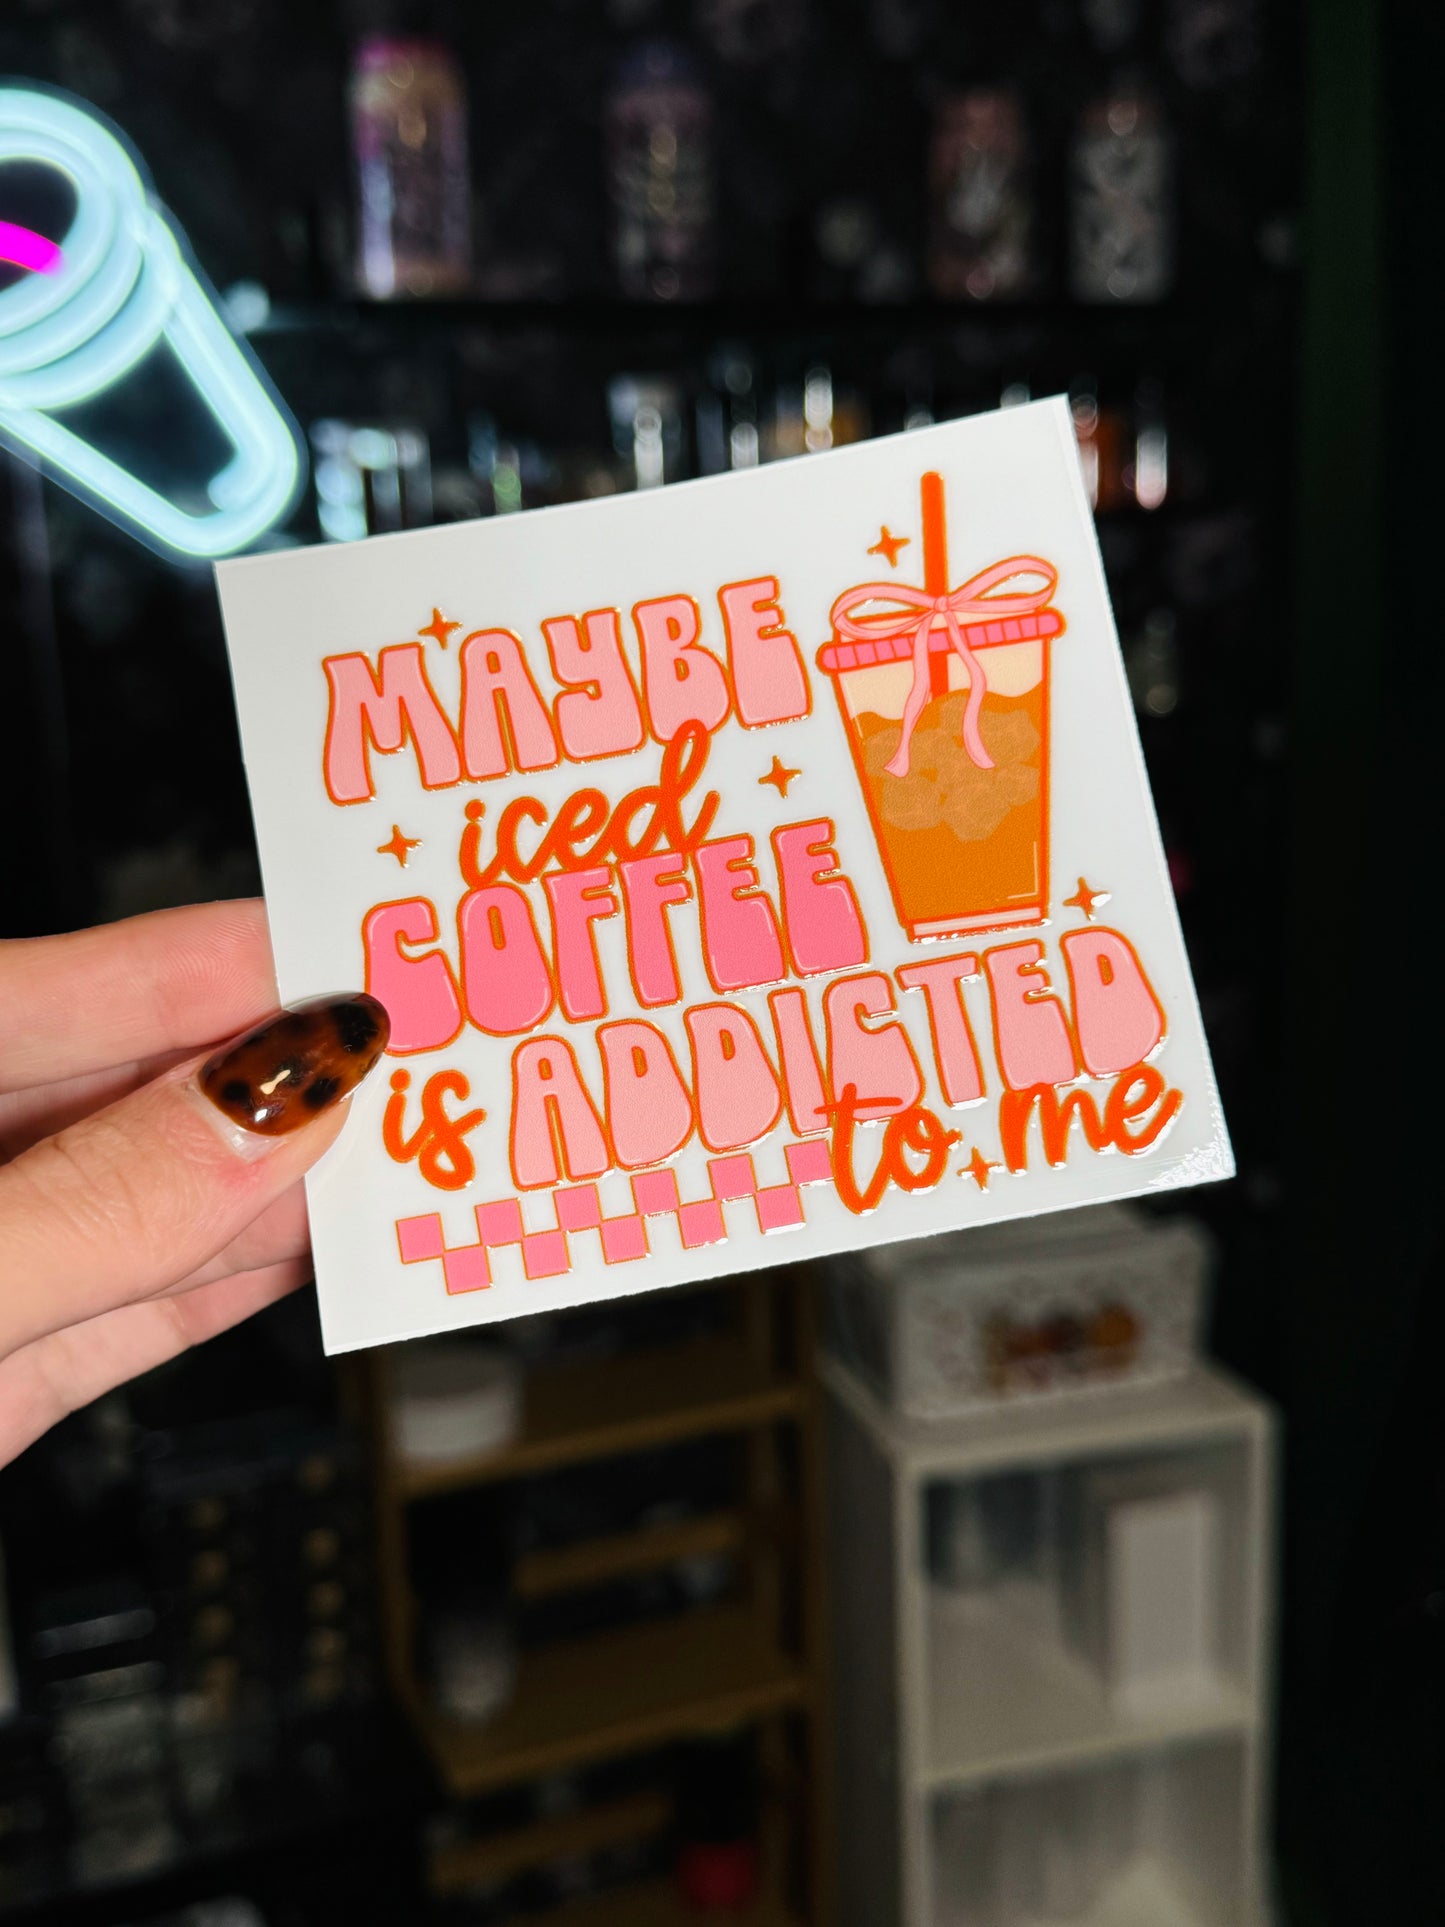 MAYBE
iced
COFFEE
is ADDICTED
to me